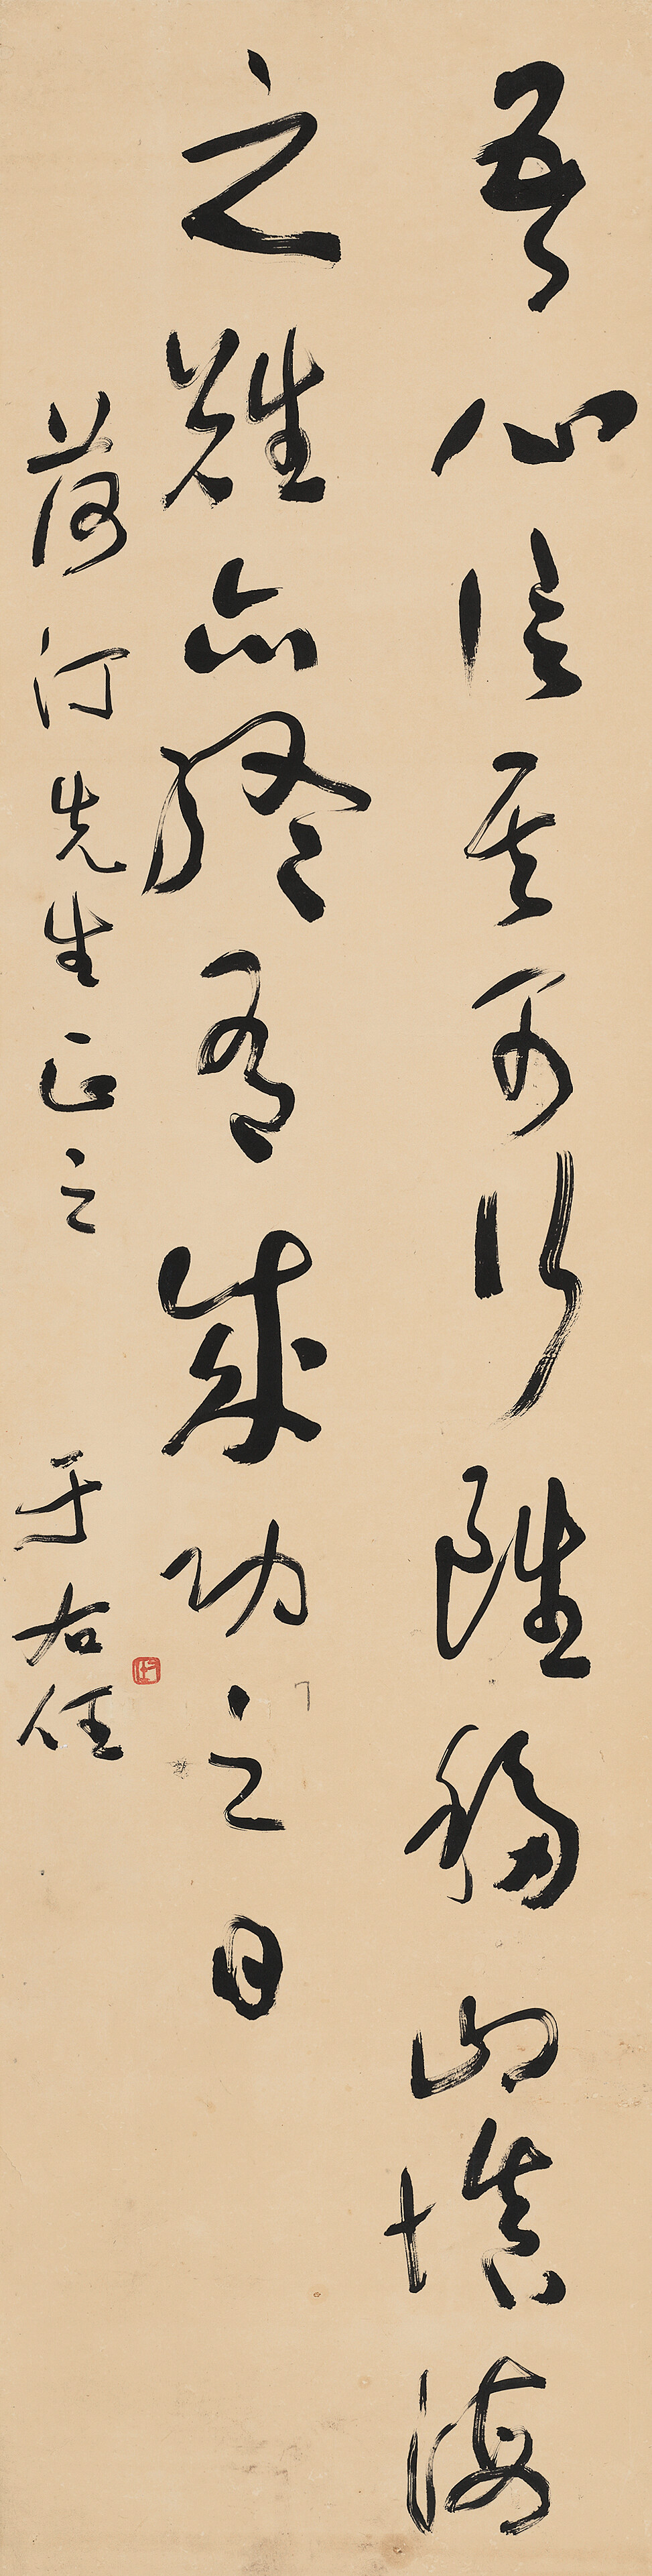 吾心信其可行雖移山填海
之難亦終有成功之日
荷汀先生正之
于右任